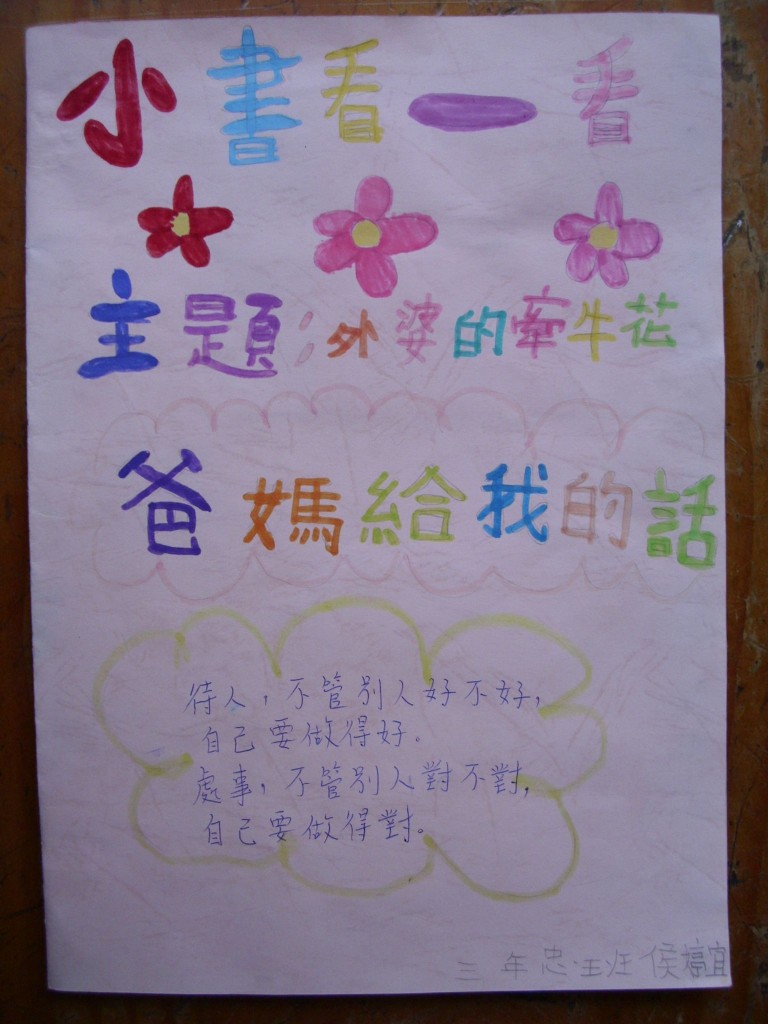 小書看一看
主題:外婆的牽牛花
爸媽給我的話
待人,不管別人好不好,
自己要做得好。
處事,不管別人對不對,
自己要做得對。
三年忠班侯婷宜